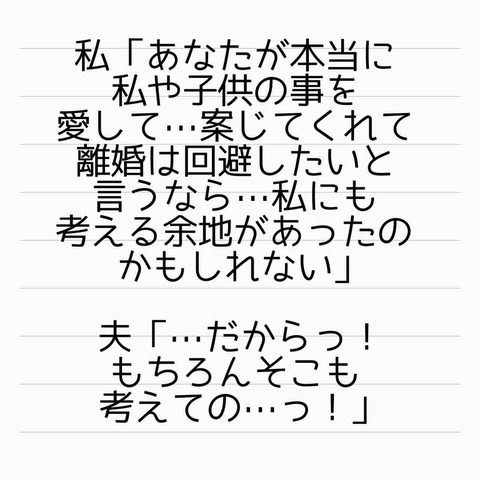 私「あなたが本当に
私や子供の事を
愛して…案じてくれて
離婚は回避したいと
言うなら…私にも
考える余地があったの
かもしれない」
夫「…だからっ！
もちろんそこも
考えての…っ！」